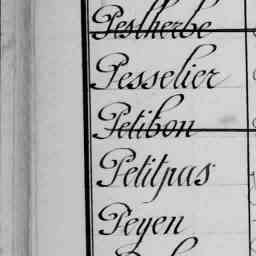 Peslherbe
Pesselier
Petibon
Petitpas
Peyen